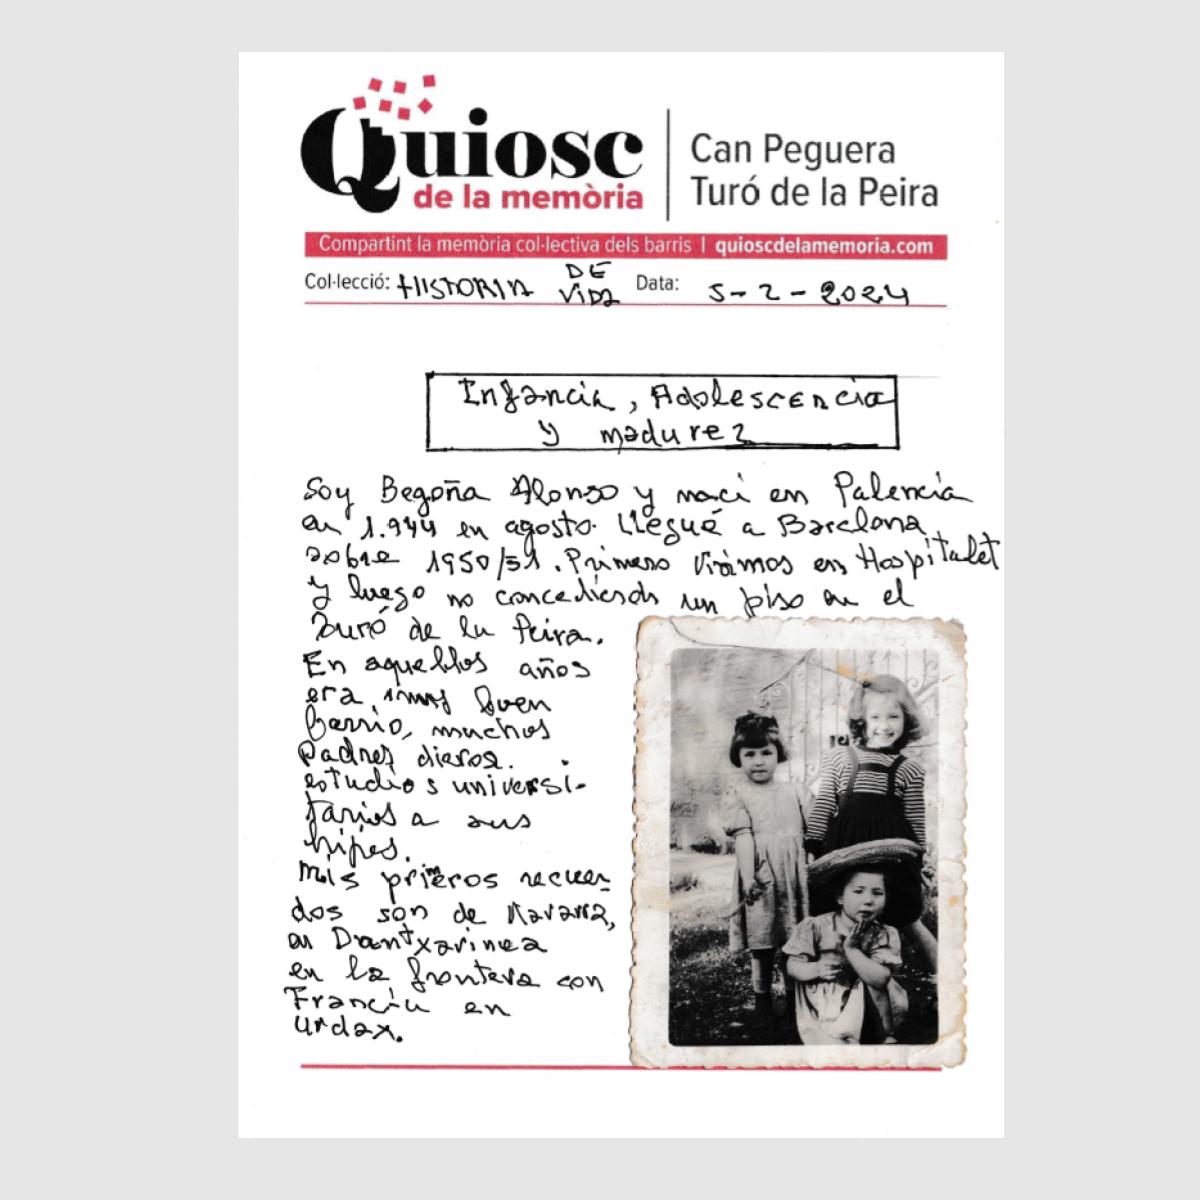 Quiosc
de la memòria
Can Peguera
Turó de la Peira
Compartint la memòria col·lectiva dels barris | quioscdelamemoria.com
Col·lecció: HISTORIA DE VIDA Data: 5-2-2024
Infancia, Adolescencia
y madurez
Soy Begoña Alonso y naci en Palencia
en 1.944 en agosto. Llegué a Barclona
sobre 1950/51. Primero Vivimos en Hospitalet
y luego no concedieron un piso en el
Turó de la Peira.
En aquellos años
era muy buen
Barrio, muchos
padres dieron
estudios universi-
tarios a sus
hijos.
Mis primeros recuer-
dos son de Navarra,
en Dantxarinea
en la frontera con
Francia en
Urdax.